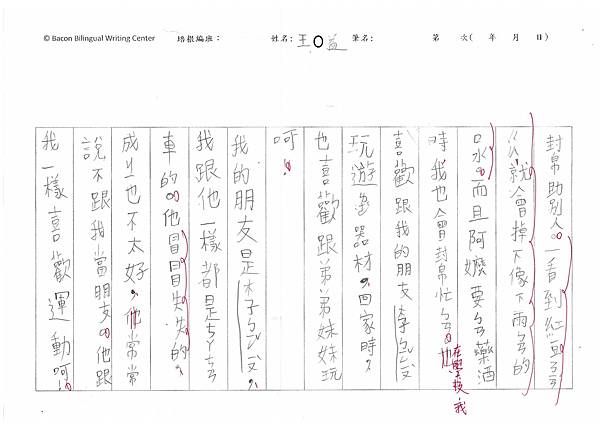 © Bacon Bilingual Writing Center 培根編班： 姓名：王○益 筆名： 第 次( 年 月 日)
封帛助別人。一看到紅豆ㄋ
ㄍ就會掉下像下雨ㄉ的
口水。而且阿嬤要ㄅ藥酒
時我也會封帛忙ㄅ。他在學校，我
喜歡跟我的朋友李
玩遊器材。回家時，
也喜歡跟弟弟妹妹玩
呵。
我的朋友是李
我跟他一樣都是
車的。他冒冒失失的，
成也不太好，他常常
說不跟我當朋友。他跟
我一樣喜歡運動呵。